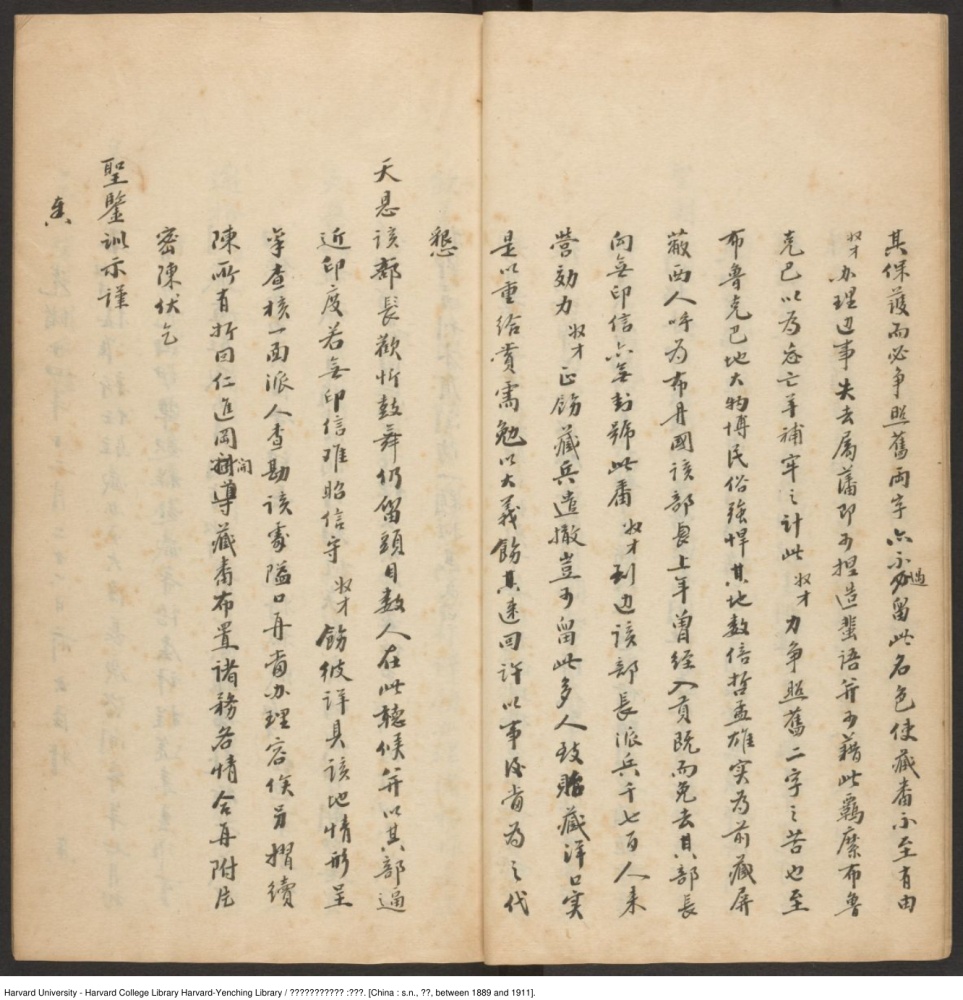 其保護而必爭照舊兩字亦不過留此名色使藏番不至有由
奴才办理边事失去属藩即可捏造蜚语并可藉此羁縻布鲁
克巴以為亡羊補牢之計此奴才力争照舊二字之苦也至
布鲁克巴地大物博民俗强悍其地数倍哲孟雄实為前藏屏
蔽西人呼為布丹國该部長上年曾经入貢既而免去其部長
向無印信亦無封號此番奴才到边该部長派兵千七百人来
营効力奴才正饬藏兵遣撤豈可留此多人致貽藏洋口实
是以重给賞需勉以大義饬其速回许以事後當為之代
懇
天恩该部長歡忻鼓舞仍留頭目数人在此聽候并以其部逼
近印度若無印信难昭信守奴才饬彼详具该地情形呈
掌查核一面派人查勘该處隘口再當办理容俟另摺續
陳所有折回仁進岡開導藏番布置諸務各情合再附片
密陳伏乞
聖鑒訓示謹
奏
Harvard University - Harvard College Library Harvard-Yenching Library / ??????????? :???. [China : s.n., ??, between 1889 and 1911].